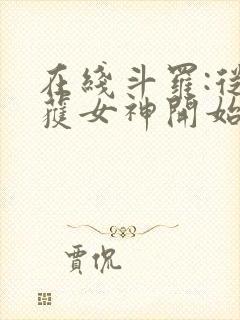 在綫斗羅:從
獲女神開始
賈侃